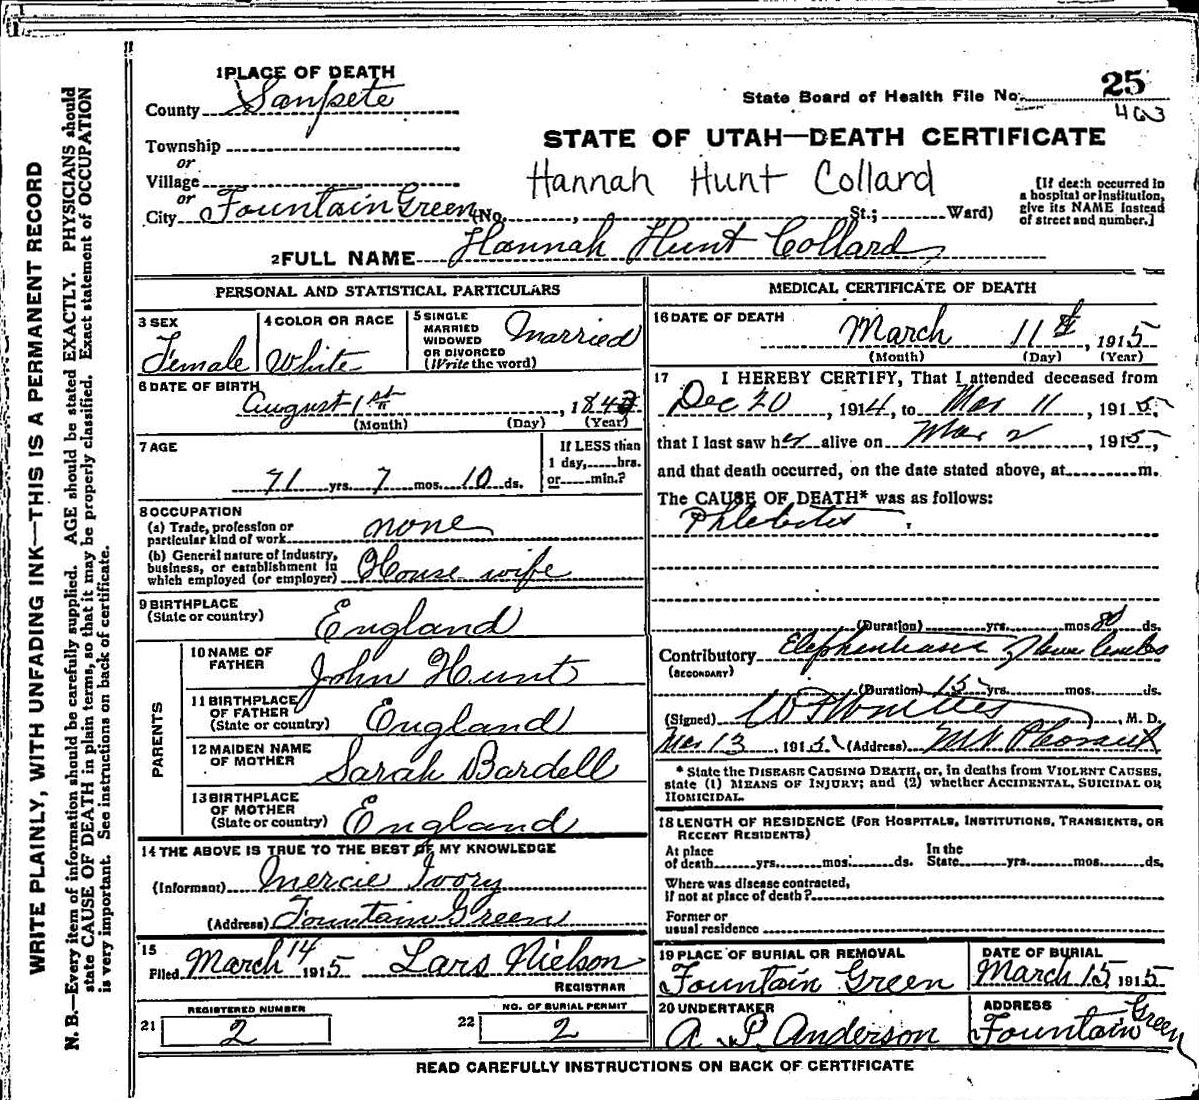 WRITE PLAINLY, WITH UNFADING INK—THIS IS A PERMANENT RECORD
N. B.—Every item of information should be carefully supplied. AGE should be stated EXACTLY. PHYSICIANS should
state CAUSE OF DEATH in plain terms, so that it may be properly classified. Exact statement of OCCUPATION
is very important. See instructions on back of certificate.
25
State Board of Health File No.
403
STATE OF UTAH—DEATH CERTIFICATE
1 PLACE OF DEATH
County Sanpete
Township
or
Village
or
City Fountain Green (No. , St.; Ward)
Hannah Hunt Collard
[If death occurred in
a hospital or institution,
give its NAME instead
of street and number.]
2 FULL NAME Hannah Hunt Collard
PERSONAL AND STATISTICAL PARTICULARS
3 SEX
Female
4 COLOR OR RACE
White
5 SINGLE
MARRIED
WIDOWED
OR DIVORCED
(Write the word)
Married
6 DATE OF BIRTH
August 1st, 1843
(Month) (Day) (Year)
7 AGE
71 yrs. 7 mos. 10 ds.
If LESS than
1 day, hrs.
or min.?
8 OCCUPATION
(a) Trade, profession or
particular kind of work none
(b) General nature of industry,
business, or establishment in
which employed (or employer) House wife
9 BIRTHPLACE
(State or country)
England
PARENTS
10 NAME OF
FATHER
John Hunt
11 BIRTHPLACE
OF FATHER
(State or country)
England
12 MAIDEN NAME
OF MOTHER
Sarah Bardell
13 BIRTHPLACE
OF MOTHER
(State or country)
England
14 THE ABOVE IS TRUE TO THE BEST OF MY KNOWLEDGE
(Informant) Mercie Ivory
(Address) Fountain Green
15
Filed March 14 1915 Lars Nielson
REGISTRAR
REGISTERED NUMBER
21 2
NO. OF BURIAL PERMIT
22 2
MEDICAL CERTIFICATE OF DEATH
16 DATE OF DEATH
March 11th, 1915
(Month) (Day) (Year)
17 I HEREBY CERTIFY, That I attended deceased from
Dec 20, 1914, to Mar 11, 1915,
that I last saw her alive on Mar 2, 1915,
and that death occurred, on the date stated above, at m.
The CAUSE OF DEATH* was as follows:
Phlebitis
(Duration) yrs. mos. ds.
Contributory
(SECONDARY)
(Duration) 15 yrs. mos. ds.
(Signed) , M. D.
Mar 13, 1915 (Address) Mt. Pleasant
* State the DISEASE CAUSING DEATH, or, in deaths from VIOLENT CAUSES,
state (1) MEANS OF INJURY; and (2) whether ACCIDENTAL, SUICIDAL OR
HOMICIDAL.
18 LENGTH OF RESIDENCE (FOR HOSPITALS, INSTITUTIONS, TRANSIENTS, OR
RECENT RESIDENTS)
At place
of death yrs. mos. ds.
In the
State yrs. mos. ds.
Where was disease contracted,
if not at place of death?
Former or
usual residence
19 PLACE OF BURIAL OR REMOVAL
Fountain Green
DATE OF BURIAL
March 15 1915
20 UNDERTAKER
A. P. Anderson
ADDRESS
Fountain Green
READ CAREFULLY INSTRUCTIONS ON BACK OF CERTIFICATE